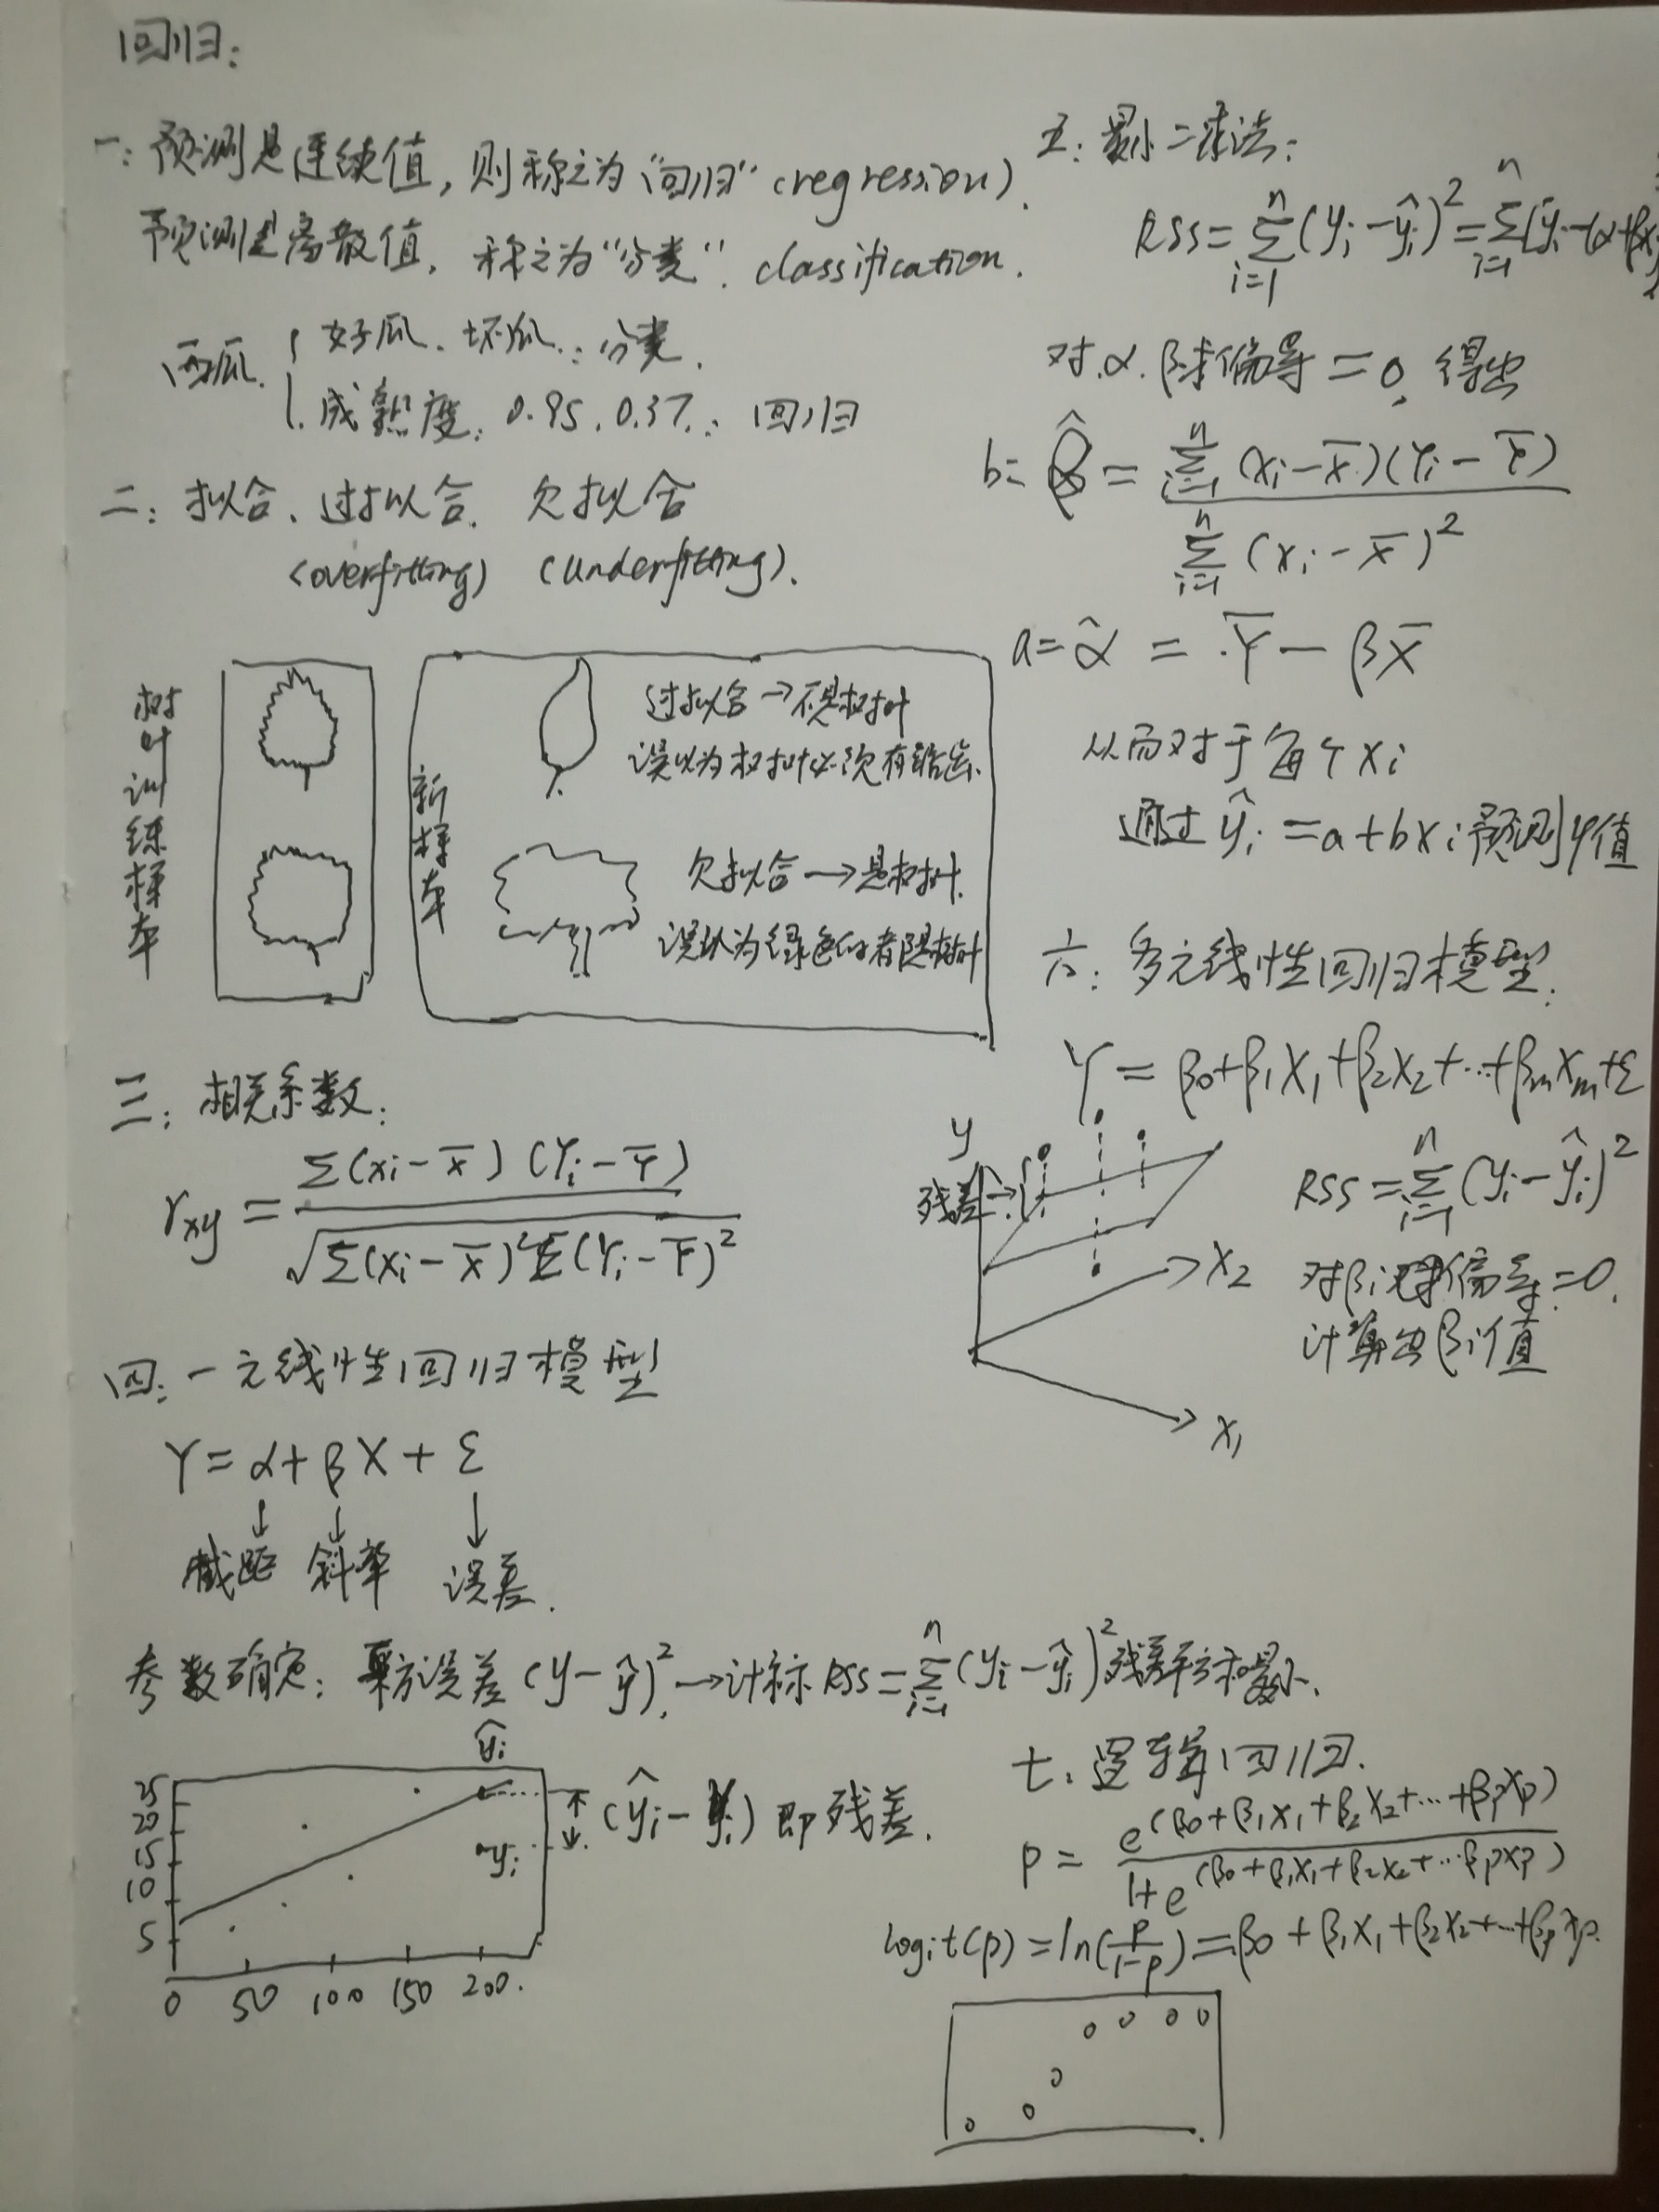 回归:
一: 预测是连续值, 则称之为"回归" (regression).
预测是离散值, 称之为"分类". classification.
西瓜. { 好瓜、坏瓜.: 分类.
成熟度: 0.95, 0.37.: 回归
二: 拟合、过拟合、欠拟合
(overfitting) (underfitting).
树叶训练样本
新样本
过拟合→不是树叶
误以为树叶必须有锯齿.
欠拟合→是树叶.
误以为绿色的都是树叶
三: 相关系数:
r_xy = Σ(xi-x̄)(Yi-Ȳ) / √Σ(xi-x̄)²Σ(Yi-Ȳ)²
四: 一元线性回归模型
Y = α + βX + ε
↓ ↓ ↓
截距 斜率 误差.
参数确定: 平方误差 (y-ŷ)². →计称 RSS = Σ_{i=1}^{n} (yi-ŷi)² 残差平方和最小.
25
20
15
10
5
0 50 100 150 200.
ŷi
yi
(ŷi-yi) 即残差.
五: 最小二乘法:
RSS = Σ_{i=1}^{n} (yi-ŷi)² = Σ_{i=1}^{n} [yi-(α+βx
对α.β求偏导=0, 得出
b = β̂ = Σ_{i=1}^{n} (xi-x̄)(Yi-Ȳ) / Σ_{i=1}^{n} (xi-x̄)²
a = α̂ = Ȳ - βX̄
从而对于每个xi
通过ŷi = a+bxi预测y值
六: 多元线性回归模型:
Y = β0+β1X1+β2X2+…+βmXm+ε
y
残差→
X2
X1
RSS = Σ_{i=1}^{n} (yi-ŷi)²
对βi求偏导=0.
计算出βi值
七、逻辑回归.
P = e^(β0+β1X1+β2X2+…+βpXp) / 1+e^(β0+β1X1+β2X2+…βpXp)
logit(p) = ln(p/1-p) = β0+β1X1+β2X2+…+βpXp.